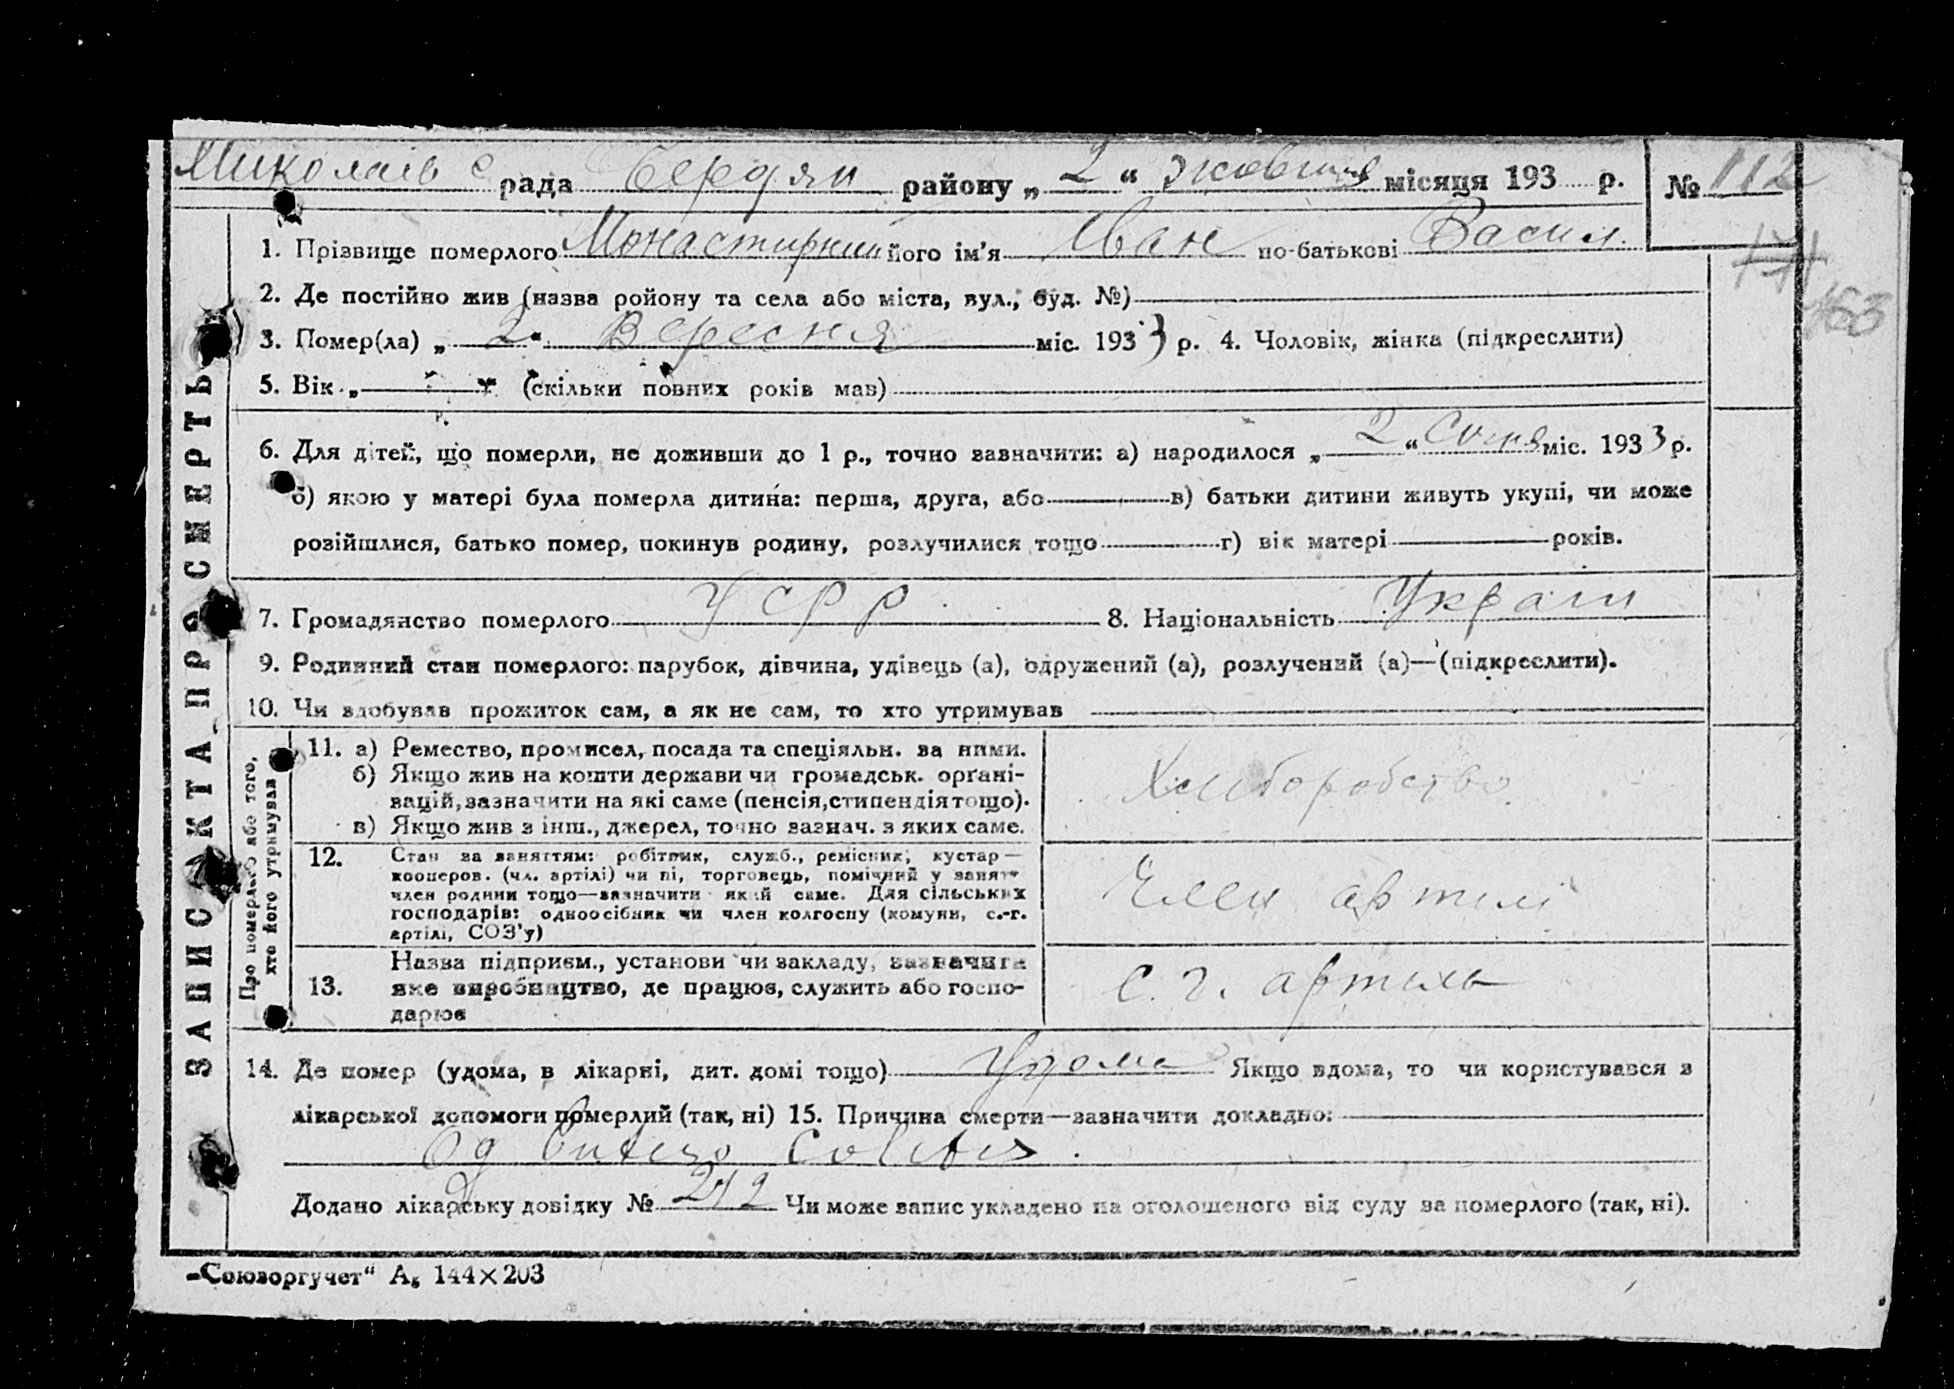 Миколаїв с рада Бердян району „ 2 “ жовтня місяця 193 р. № 112
171
163
1. Прізвище померлого Монастирний його ім'я Іван по-батькові Васил
2. Де постійно жив (назва ройону та села або міста, вул., буд. №)
3. Помер(ла) „ 2 “ Вересня міс. 1933 р. 4. Чоловік, жінка (підкреслити)
5. Вік „ “ (скільки повних років мав)
6. Для дітей, що померли, не доживши до 1 р., точно зазначити: а) народилося „ 2 “ Січня міс. 1933 р.
б) якою у матері була померла дитина: перша, друга, або в) батьки дитини живуть укупі, чи може
розійшлися, батько помер, покинув родину, розлучилися тощо г) вік матері років.
7. Громадянство померлого УСРР 8. Національність Україн
9. Родинний стан померлого: парубок, дівчина, удівець (а), одружений (а), розлучений (а)—(підкреслити).
10. Чи здобував прожиток сам, а як не сам, то хто утримував
ЗАПИС АКТА ПРО СМЕРТЬ
Про померлого або того,
хто його утримував
11. а) Ремество, промисел, посада та спеціяльн. за ними.
б) Якщо жив на кошти держави чи громадськ. орґані-
зацій, зазначити на які саме (пенсія, стипендія тощо).
в) Якщо жив з інш., джерел, точно зазнач. з яких саме.
Хліборобство
12. Стан за заняттям: робітник, служб., ремісник, кустар—
кооперов. (чл. артілі) чи ні, торговець, помічний у занятт
член родини тощо—зазначити який саме. Для сільських
господарів: одноосібник чи член колгоспу (комуни, с.-г.
артілі, СОЗ'у)
Член артілі
13. Назва підприєм., установи чи закладу, зазначити
яке виробництво, де працює, служить або госпо-
дарює
С. г. артіль
14. Де помер (удома, в лікарні, дит. домі тощо) Удома Якщо вдома, то чи користувався з
лікарської допомоги померлий (так, ні) 15. Причина смерти—зазначити докладно:
Од Entero Colitis.
Додано лікарську довідку № 212 Чи може запис укладено на оголошеного від суду за померлого (так, ні).
„Союзоргучет“ А₅ 144×203